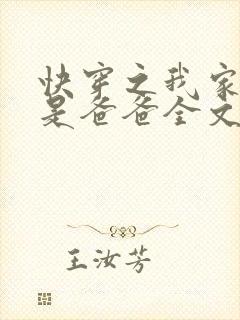 快穿之我家
是爸爸全文
王汝芳